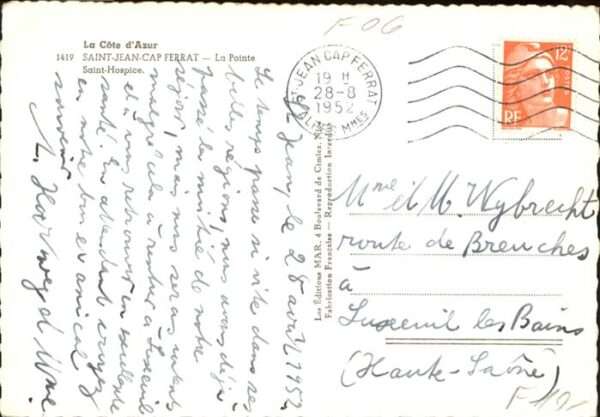 F 06
La Côte d'Azur
1419 SAINT-JEAN-CAP FERRAT — La Pointe
Saint-Hospice.
St JEAN CAP FERRAT
19 H
28-8
1952
ALPES MMES
12F
RF
St Jean, le 28 août 1952.
Le temps passe si vite dans ces
belles régions, nous avons déjà
passé la moitié de notre
séjour, mais nous serons contents
malgré cela à rentrer à Luxeuil
et à vous retrouver en excellente
santé. En attendant croyez
en notre bon et amical
souvenir
Les Éditions MAR, 4 Boulevard de Cimiez, Nice
Fabrication Française — Reproduction Interdite
Mme et M. Wybrecht
route de Breuches
à
Luxeuil les Bains
(Haute-Saône)
F 12